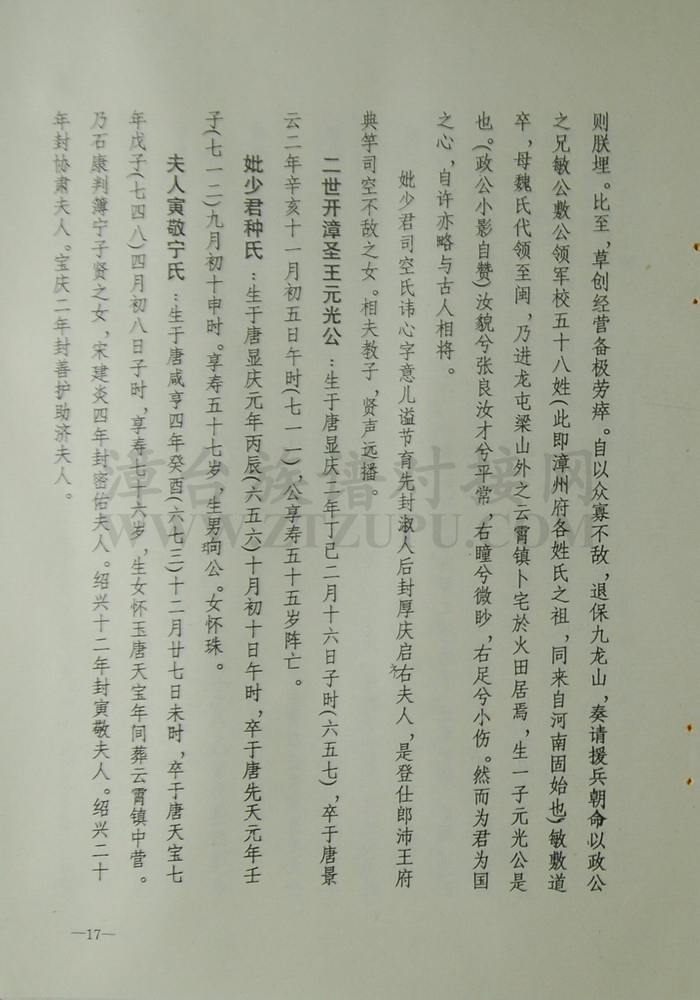 则朕埋。比至，草创经营备极劳瘁。自以众寡不敌，退保九龙山，奏请援兵朝命以政公
之兄敏公敷公领军校五十八姓(此即漳州府各姓氏之祖，同来自河南固始也)敏敷道
卒，母魏氏代领至闽，乃进龙屯梁山外之云霄镇卜宅於火田居焉，生一子元光公是
也。(政公小影自赞)汝貌兮张良汝才兮平常，右瞳兮微眇，右足兮小伤。然而为君为国
之心，自许亦略与古人相将。
妣少君司空氏讳心字意儿谥节育先封淑人后封厚庆启右夫人，是登仕郎沛王府
典竽司空不敌之女。相夫教子，贤声远播。
二世开漳圣王元光公：生于唐显庆二年丁己二月十六日子时(六五七)，卒于唐景
云二年辛亥十一月初五日午时(七一一)，公享寿五十五岁阵亡。
妣少君种氏：生于唐显庆元年丙辰(六五六)十月初十日午时，卒于唐先天元年壬
子(七一二)九月初十申时。享寿五十七岁，生男珦公。女怀珠。
夫人寅敬宁氏：生于唐咸亨四年癸酉(六七三)十二月廿七日未时，卒于唐天宝七
年戊子(七四八)四月初八日子时，享寿七十六岁，生女怀玉唐天宝年间葬云霄镇中营。
乃石康判簿宁子贤之女，宋建炎四年封密佑夫人。绍兴十二年封寅敬夫人。绍兴二十
年封协肃夫人。宝庆二年封善护助济夫人。
—17—
WWW.ZTZUPU.COM